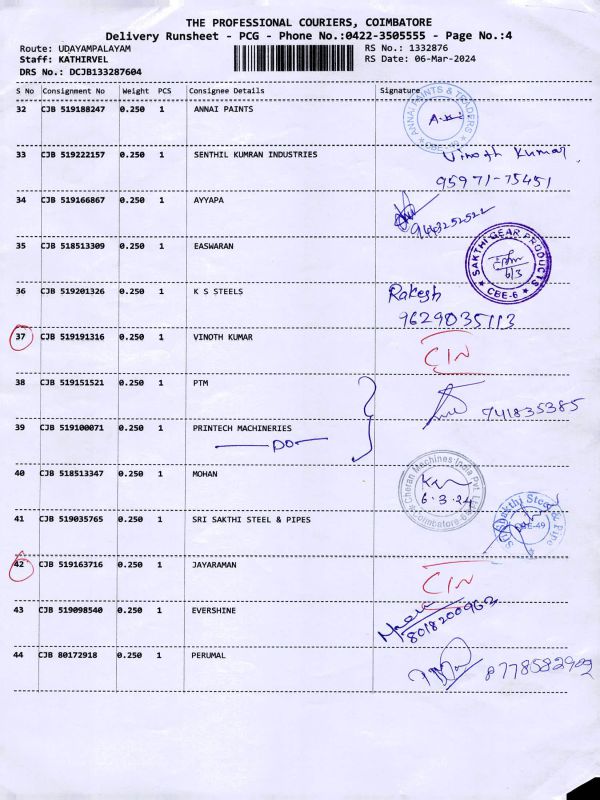 THE PROFESSIONAL COURIERS, COIMBATORE
Delivery Runsheet - PCG - Phone No.:0422-3505555 - Page No.:4
Route: UDAYAMPALAYAM RS No.: 1332876
Staff: KATHIRVEL RS Date: 06-Mar-2024
DRS No.: DCJB133287604
S No Consignment No Weight PCS Consignee Details Signature
32 CJB 519188247 0.250 1 ANNAI PAINTS
ANNAI PAINTS & TRADERS
33 CJB 519222157 0.250 1 SENTHIL KUMRAN INDUSTRIES Vinoth Kumar
95971-75451
34 CJB 519166867 0.250 1 AYYAPA
9443252522
35 CJB 518513309 0.250 1 EASWARAN
SAKTHI GEAR PRODUCTS
6/3
CBE-6
36 CJB 519201326 0.250 1 K S STEELS Rakesh
9629035113
37 CJB 519191316 0.250 1 VINOTH KUMAR
CIN
38 CJB 519151521 0.250 1 PTM
741835385
39 CJB 519100071 0.250 1 PRINTECH MACHINERIES
DO
40 CJB 518513347 0.250 1 MOHAN
Cheran Machines India Pvt. Ltd
6.3.24
Coimbatore-6
41 CJB 519035765 0.250 1 SRI SAKTHI STEEL & PIPES
Sri Sakthi Steel & Pipe
CBE-49
42 CJB 519163716 0.250 1 JAYARAMAN
CIN
43 CJB 519098540 0.250 1 EVERSHINE
8018200962
44 CJB 80172918 0.250 1 PERUMAL
8778582902